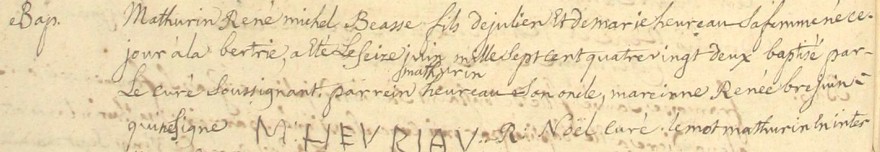 eBap. Mathurin René michel Beasse fils de julien Et de marie heureau Sa femme né ce-
jour à la bertrie, a Eté Le Seize juin mille Sept cent quatre vingt deux baptisé par-
mathurin
Le curé Soussignant. parrein heureau Son oncle, mareinne Renée
qui ne Signe M: HEVRIAV:. R: Noël curé. le mot mathurin En inter